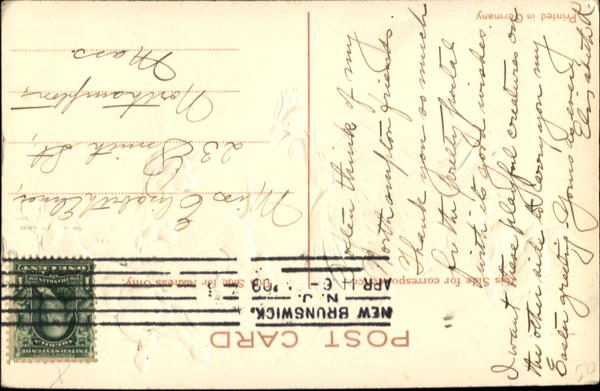 POST CARD
This Side for correspondence
This Side for Address Only
Printed in Germany
NEW BRUNSWICK,
N. J.
APR 6
'09
UNITED STATES
FRANKLIN
ONE CENT
Miss Elizabeth
23 Smith St,
Northampton,
Mass.
I often think of my
Northampton friends.
Thank you so much
for the pretty postal
with its good wishes.
I want these playful creatures on
the other side to carry you my
Easter greeting. Yours as ever,
Elizabeth R.
50